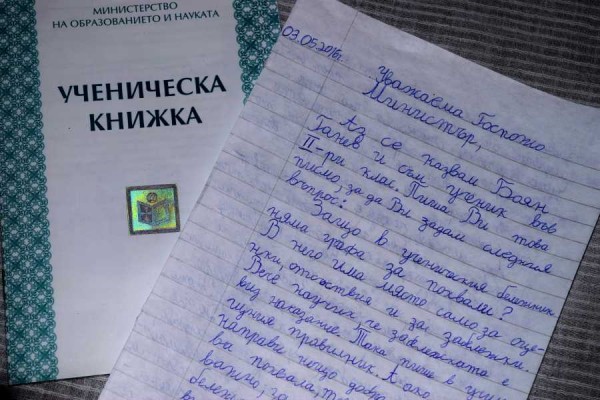 МИНИСТЕРСТВО
НА ОБРАЗОВАНИЕТО И НАУКАТА
УЧЕНИЧЕСКА
КНИЖКА
03.05.2016г.
Уважаема Госпожо
Министър,
Аз се казвам Боян
Ганев и съм ученик във
II-ри клас. Пиша Ви това
писмо, за да Ви задам следния
въпрос:
Защо в ученическия бележник
няма графа за похвали?
В него има място само за оце-
нки, отсъствия и за: забележки.
Вече научих, че забележката е
вид наказание. Така пише в учен
ищния правилник. А ако
направя нещо добро
ва похвала, т
важно, за
бележ